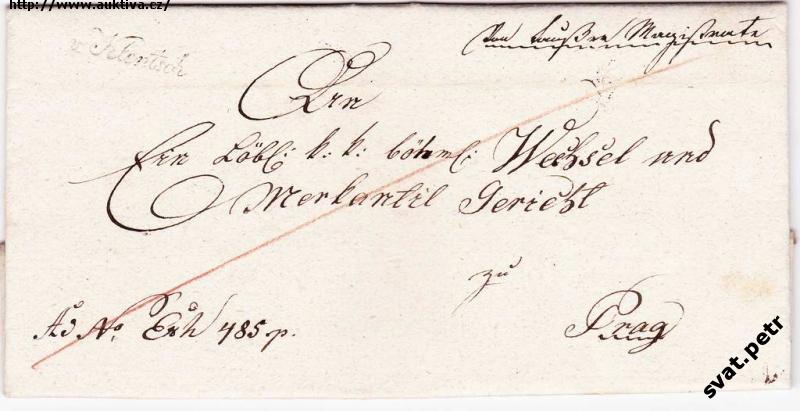 http://www.auktiva.cz/
Von Laußer Magistrate
v. Klentsch
An
Ein Löbl: k: k: böhml: Wechsel und
Merkantil Gericht
zu
Ad No. Exh 485 p.
Prag
svat.petr